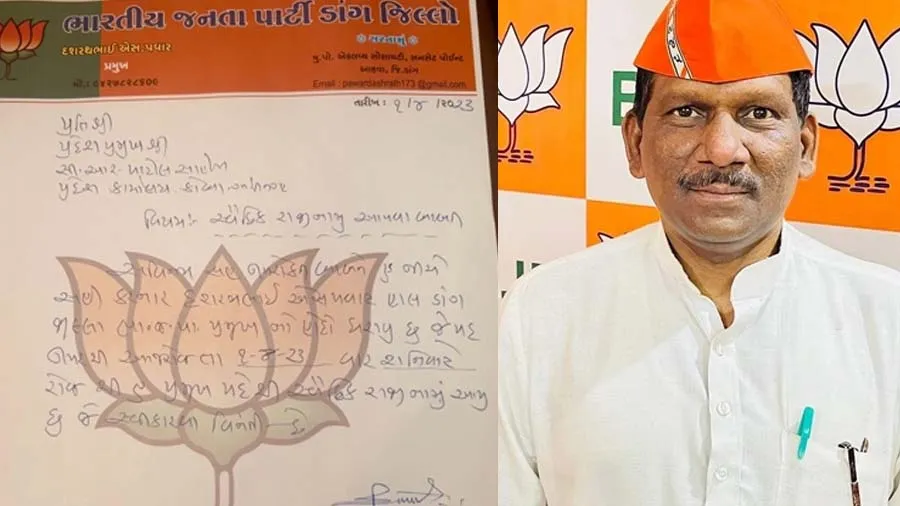 ભારતીય જનતા પાર્ટી ડાંગ જિલ્લો
દશરથભાઈ એસ.પવાર
પ્રમુખ
સરનામું
મુ.પો. એકલવ્ય સોસાયટી, સનસેટ પોઈન્ટ
આહવા, જિ.ડાંગ
Email : pawardashrath173@gmail.com
તારીખ : ૧/૪/૨૦૨૩
પ્રતિશ્રી
પ્રદેશ પ્રમુખ શ્રી
સી.આર. પાટીલ સાહેબ
પ્રદેશ કાર્યાલય
વિષય:- સ્વૈચ્છિક રાજીનામુ આપવા બાબત
સવિનય સહ ઉપરોક્ત બાબતે હું નીચે
સહી કરનાર દશરથભાઈ એસ પવાર હાલ ડાંગ
જીલ્લા ભા.જ.પા. પ્રમુખ નો હોદ્દો ધરાવુ છુ જે પદ
ઉપરથી આજરોજ તા ૧-૪-૨૩ વાર શનિવારે
રોજ થી હું પ્રમુખ પદે થી સ્વૈચ્છિક રાજીનામું આપુ
છુ જે સ્વીકારવા વિનંતી છે